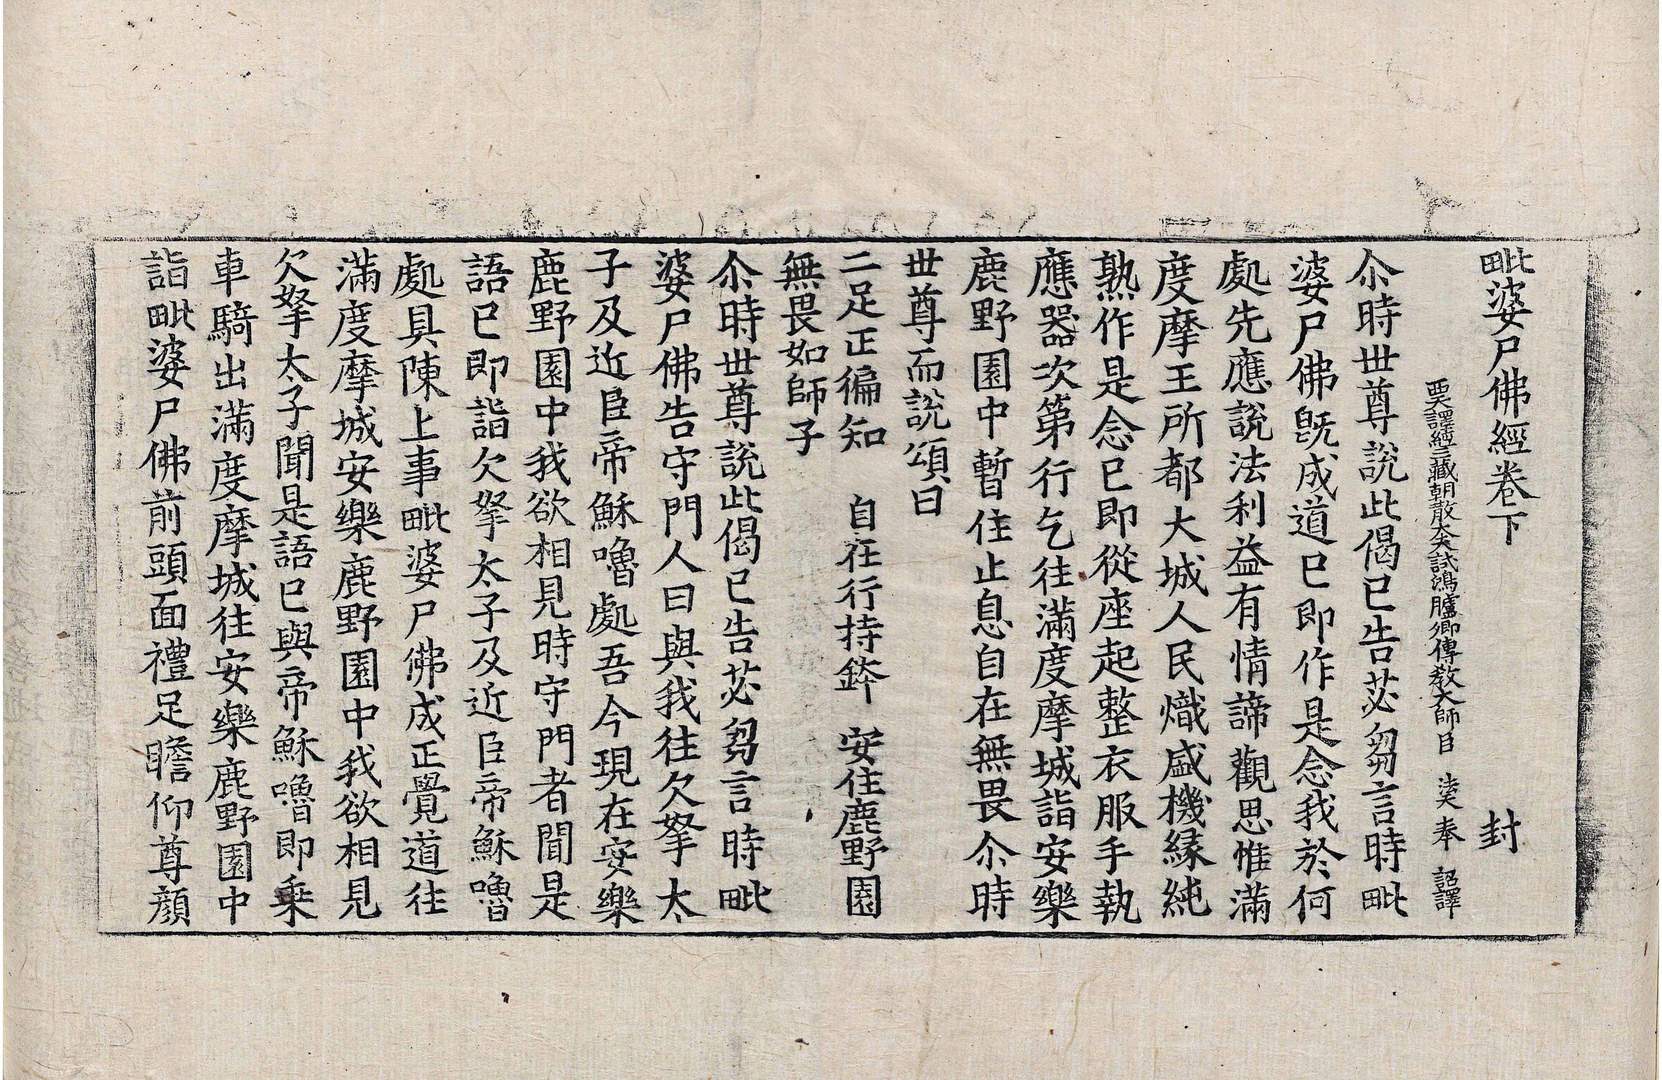 毗婆尸佛經卷下 封
西天譯經三藏朝散大夫試鴻臚卿傳教大師臣 法天奉 詔譯
尒時世尊說此偈已告苾芻言時毗
婆尸佛旣成道已即作是念我於何
處先應說法利益有情諦觀思惟滿
度摩王所都大城人民熾盛機緣純
熟作是念已即從座起整衣服手執
應器次第行乞往滿度摩城詣安樂
鹿野園中暫住止息自在無畏尒時
世尊而說頌曰
二足正徧知 自在行持鉢 安住鹿野園
無畏如師子
尒時世尊說此偈已告苾芻言時毗
婆尸佛告守門人曰與我往欠拏太
子及近臣帝穌嚕處吾今現在安樂
鹿野園中我欲相見時守門者聞是
語已即詣欠拏太子及近臣帝穌嚕
處具陳上事毗婆尸佛成正覺道往
滿度摩城安樂鹿野園中我欲相見
欠拏太子聞是語已與帝穌嚕即乗
車騎出滿度摩城往安樂鹿野園中
詣毗婆尸佛前頭面禮足瞻仰尊顔